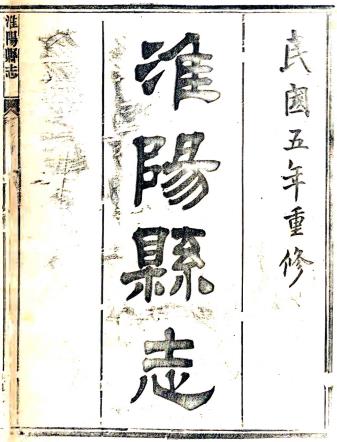 民國五年重修
淮陽縣志
淮陽縣志